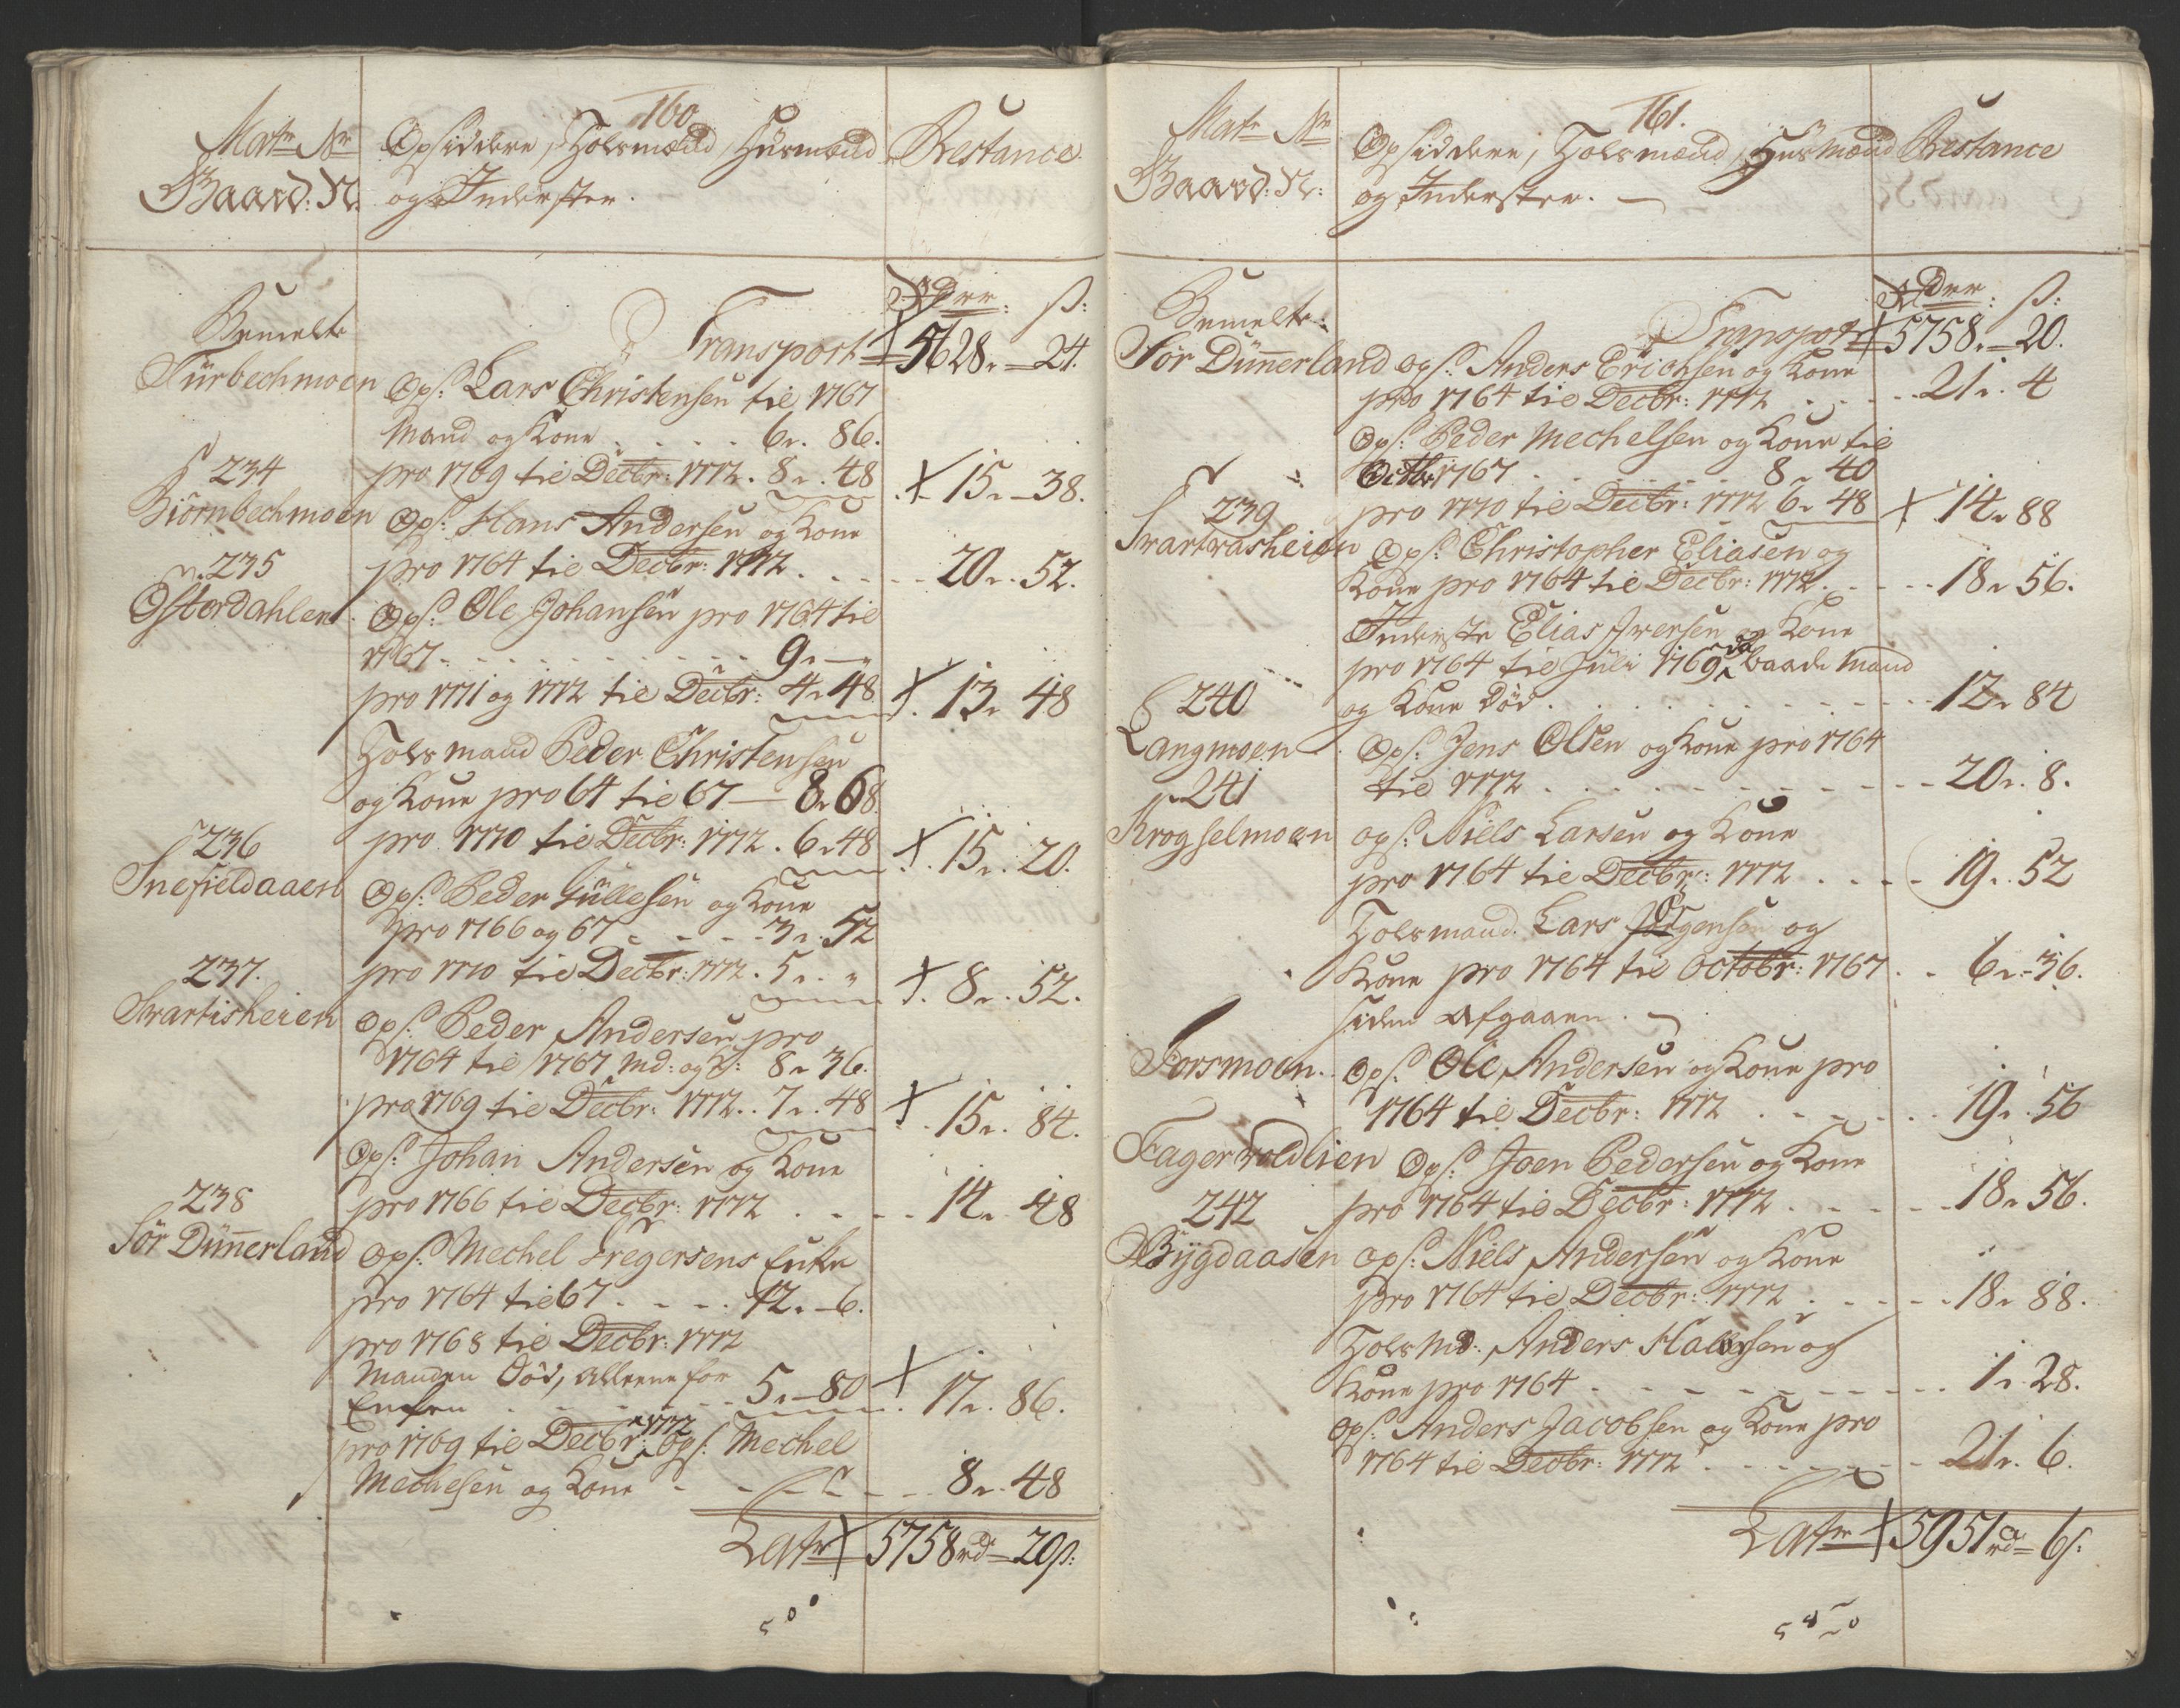 160.
Matr Nr
Gaard: N.
Opsiddere, Folsmænd, Huusmænd
og Inderster.
Restance.
Rdrr: ß:
Bemelte
Transport 5628r.=24.
Turbechmoen
Ops: Lars Christensen tie 1767
Mand og Kone . . . . 6r. 86.
pro 1769 tie Decbr: 1772. 8r. 48 15r.-38.
234
Biörnbechmoen
Ops: Hans Andersen og Kone
pro 1764 tie Decbr: 1772 . . . . 20r. 52.
235
Osterdahlen
Ops: Ole Johansen pro 1764 tie
1767 . . . . 9r.-"
pro 1771 og 1772 tie Decbr: 4r 48 13r. 48
Folsmand Peder Christensen
og Kone pro 64 tie 67 — 8r 68.
pro 1770 tie Decbr: 1772 . 6r 48 15r. 20.
236
Snefieldaaen
Ops: Peder Gullesen og Kone
pro 1766 og 67 . - - - 3r. 52
pro 1770 tie Decbr: 1772 . 5r. " 8r. 52.
237.
Svartisheien
Ops: Peder Andersen pro
1764 tie 1767 Md: og K: 8r 36.
pro 1769 tie Decbr: 1772 . . 7r. 48 15r. 84.
Ops: Johan Andersen og Kone
pro 1766 tie Decbr: 1772 . . . . 14r. 48
238
Sör Dünnerland
Ops: Mechel Gregersens Enke
pro 1764 tie 67 . - - . 12r.-6.
pro 1768 tie Decbr: 1772
Manden Död, alleene for
Enken . . . . 5r.-80 17r. 86.
pro 1769 tie Decbr: 1772 Ops: Mechel
Mechelsen og Kone - - - - - 8r. 48
Latr 5758rd=20ß:
161.
Matr Nr
Gaard: N:
Opsiddere, Folsmænd, Huusmænd
og Inderster. —
Restance
Rdrr: ß:
Bemelte
Transport 5758r.=20.
Sör Dünnerland Ops: Anders Erichsen og Kone
pro 1764 tie Decbr: 1772 . . . . 21r. 4
Ops: Peder Mechelsen og Kone tie
Octbr 1767 . . . . 8r 40
pro 1770 tie Decbr: 1772 6r 48 14r 88
239
Svartvasheien
Ops: Christopher Eliasen og
Kone pro 1764 tie Decbr: 1772 . . . . 18r 56.
Inderste Elias Iversen og Kone
pro 1764 tie Juli 1769 da baade Mand
og Kone Död . . . . 12r 84
240
Langmoen
Ops: Jens Olsen og Kone pro 1764
tie 1772 . . . . 20r. 8.
241
Krogselmoen
ops: Niels Larsen og Kone
pro 1764 tie Decbr: 1772 . . . . 19r. 52
Folsmand Lars Jörgensen og
Kone pro 1764 til Octobr: 1767 . . 6r-36.
siden afgaaen . —
Forsmoen.
Ops: Ole Andersen og Kone pro
1764 tie Decbr: 1772 . . . . 19r. 56
Fagervoldlien
Ops: Joen Pedersen og Kone
pro 1764 tie Decbr: 1772 . . . . 18r 56.
242
Bygdaasen
ops: Niels Andersen og Kone
pro 1764 tie Decbr: 1772 . . . . 18r 88.
Fols Md: Anders og
Kone pro 1764 . . . . 1r. 28.
Ops: Anders Jacobsen og Kone pro
1764 tie Decbr: 1772 . . . . 21r. 6.
Latr 5951rd= 6ß: